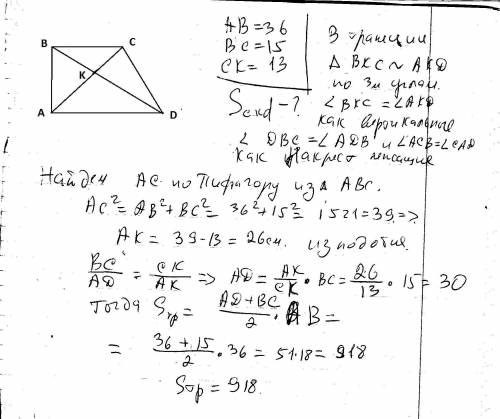 B C
K
A D
AB=36
BC=15
CK=13
Sckd-?
В трапеции
Δ BKC ~ AKD
по 3м углам.
∠BKC=∠AKD
как вертикальные
∠ DBC=∠ADB и ∠ACB=∠CAD
как Накрест лежащие
Найдем AC по Пифагору из Δ ABC.
AC²=AB²+BC²=36²+15²=1521=39=>
AK=39-13=26см. из подобия.
BC/AD=CK/AK=>AD=AK/CK·BC=26/13·15=30
тогда Sтр=AD+BC/2·AB=
=36+15/2·36=51·18=918
Sтр=918.